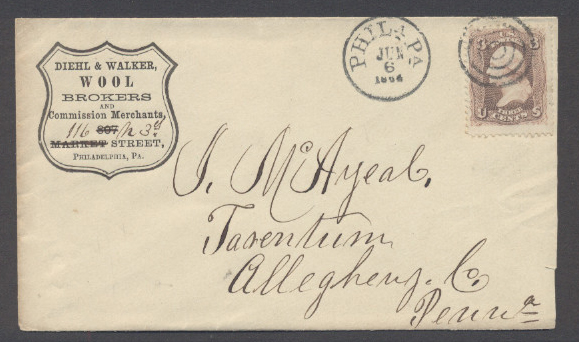 DIEHL & WALKER,
WOOL
BROKERS
AND
Commission Merchants,
116 807 N 3d
MARKET STREET,
PHILADELPHIA, PA.
PHILA. PA
JUN
6
U
S
J. McAyeal,
Tarentum
Allegheny. Co
Penna